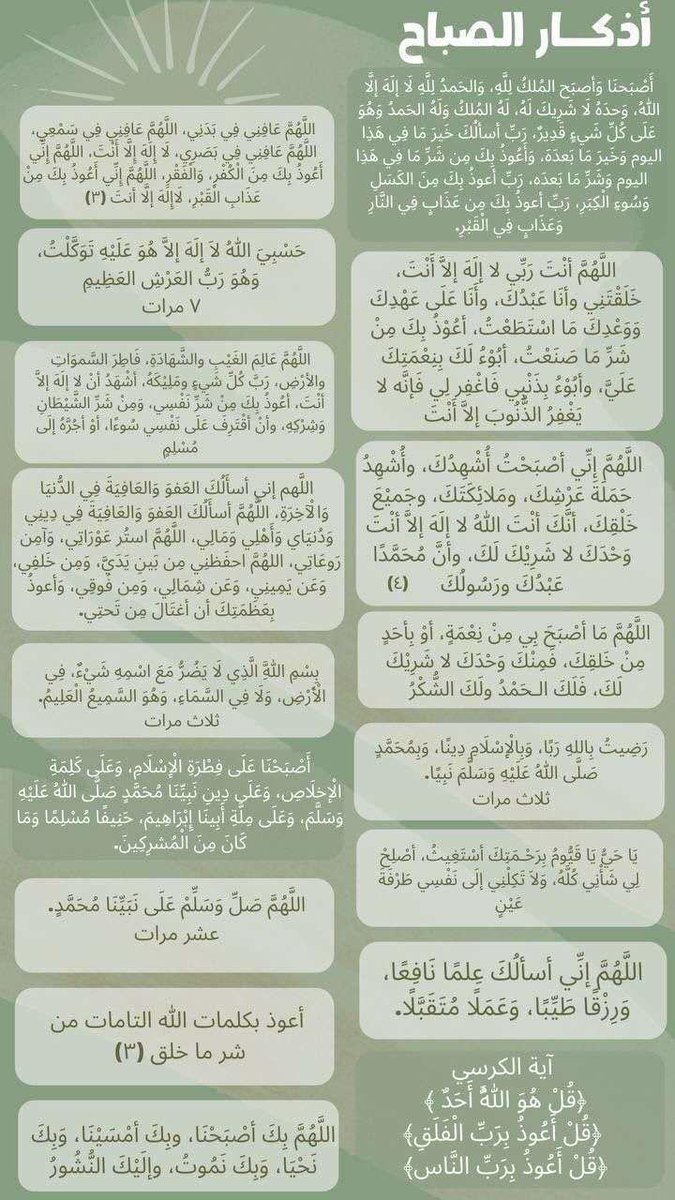 أذكار الصباح
أَصْبَحنَا وَأَصبَح المُلكُ لِلَّهِ، وَالحَمدُ لِلَّهِ لَا إِلَهَ إِلَّا
اللهُ، وَحدَهُ لَا شَرِيكَ لَهُ، لَهُ المُلكُ وَلَهُ الحَمدُ وَهُوَ
عَلَى كُلِّ شَيءٍ قَدِيرٌ، رَبِّ أسألُكَ خَيرَ مَا فِي هَذَا
اليوم وَخَيرَ مَا بَعدَهُ، وَأَعُوذُ بِكَ مِن شَرِّ مَا فِي هَذَا
اليوم وَشَرِّ مَا بَعدَه، رَبِّ أعوذُ بِكَ مِنَ الكَسَلِ
وَسُوءِ الكِبَرِ، رَبِّ أعوذُ بِكَ مِن عَذَابٍ فِي النَّارِ
وَعَذَابٍ فِي الْقَبْرِ.
اللَّهُمَّ أنْتَ رَبِّي لا إلَهَ إلاَّ أَنْتَ،
خَلَقْتَنِي وأنَا عَبْدُكَ، وأَنَا عَلَى عَهْدِكَ
وَوَعْدِكَ مَا اسْتَطَعْتُ، أعُوْذُ بِكَ مِنْ
شَرِّ مَا صَنَعْتُ، أبُوْءُ لَكَ بِنِعْمَتِكَ
عَلَيَّ، وأبُوْءُ بِذَنْبِي فَاغْفِر لِي فَإِنَّه لا
يَغْفِرُ الذُّنوبَ إلاَّ أَنْتَ
اللَّهُمَّ إنِّي أصْبَحْتُ أُشْهِدُكَ، وأُشْهِدُ
حَمَلَةَ عَرْشِكَ، ومَلائِكَتَكَ، وجَمِيْعَ
خَلْقِكَ، أنَّكَ أنْتَ اللهُ لا إلَهَ إلاَّ أنْتَ
وَحْدَكَ لا شَرِيْكَ لَكَ، وأنَّ مُحَمَّدًا
عَبْدُكَ ورَسُولُكَ (٤)
اللَّهُمَّ مَا أصْبَحَ بِي مِنْ نِعْمَةٍ، أوْ بِأحَدٍ
مِنْ خَلقِكَ، فَمِنْكَ وَحْدَكَ لا شَرِيْكَ
لَكَ، فَلَكَ الـحَمْدُ ولَكَ الشُّكْرُ
رَضِيتُ بِاللهِ رَبًا، وَبِالْإِسْلَامِ دِينًا، وَبِمُحَمَّدٍ
صَلَّى اللهُ عَلَيْهِ وَسَلَّمَ نَبِيًا.
ثلاث مرات
يَا حَيُّ يَا قَيُّومُ بِرَحْـمَتِكَ أسْتَغِيثُ، أصْلِحْ
لِي شَأْنِي كُلَّهُ، وَلاَ تَكِلْنِي إلَى نَفْسِي طَرْفَةَ
عَيْنٍ
اللَّهُمَّ إنِّي أسألُكَ عِلمًا نَافِعًا،
وَرِزْقًا طَيِّبًا، وَعَمَلًا مُتَقَبَّلًا.
آية الكرسي
﴿قُلْ هُوَ اللَّهُ أَحَدٌ﴾
﴿قُلْ أَعُوذُ بِرَبِّ الْفَلَقِ﴾
﴿قُلْ أَعُوذُ بِرَبِّ النَّاس﴾
اللَّهُمَّ عَافِنِي فِي بَدَنِي، اللَّهُمَّ عَافِنِي فِي سَمْعِي،
اللَّهُمَّ عَافِنِي فِي بَصَرِي، لَا إلَهَ إلاَّ أنْتَ، اللَّهُمَّ إنِّي
أَعُوذُ بِكَ مِنَ الْكُفْرِ، وَالْفَقْرِ، اللَّهُمَّ إنِّي أَعُوذُ بِكَ مِنْ
عَذَابِ القَبْرِ، لاإلَهَ إلَّا أنتَ (٣)
حَسْبِيَ اللهُ لاَ إلَهَ إلاَّ هُوَ عَلَيْهِ تَوَكَّلْتُ،
وَهُوَ رَبُّ العَرْشِ العَظِيمِ
٧ مرات
اللَّهُمَّ عَالِمَ الغَيْبِ والشَّهَادَةِ، فَاطِرَ السَّموَاتِ
والأرْضِ، رَبَّ كُلِّ شَيءٍ ومَلِيْكَهُ، أشْهَدُ أنْ لا إلَهَ إلاَّ
أنْتَ، أعُوذُ بِكَ مِنْ شَرِّ نَفْسِي، وَمِنْ شَرِّ الشَّيْطَانِ
وَشِرْكِهِ، وأنْ أقْتَرِفَ عَلَى نَفْسِي سُوءًا، أوْ أجُرَّهُ إلَى
مُسْلِمٍ
اللَّهم إني أسألُكَ العَفوَ وَالعَافِيَةَ فِي الدُّنيَا
وَالْآخِرَةِ، اللَّهُمَّ أسألُكَ العَفوَ وَالعَافِيَةَ فِي دِينِي
وَدُنيَاي وَأَهْلِي وَمَالِي، اللَّهُمَّ استُر عَوْرَاتِي، وَآمِن
رَوعَاتِي، اللهُمَّ احفَظنِي مِن بَينِ يَدَيَّ، وَمِن خَلفِي،
وَعَن يَمِينِي، وَعَن شِمَالِي، وَمِن فَوقِي، وَأعوذُ
بِعَظَمَتِكَ أن أغتَالَ مِن تَحتِي.
بِسْمِ اللَّهِ الَّذِي لَا يَضُرُّ مَعَ اسْمِهِ شَيْءٌ، فِي
الْأَرْضِ، وَلَا فِي السَّمَاءِ، وَهُوَ السَّمِيعُ الْعَلِيمُ.
ثلاث مرات
أَصْبَحْنَا عَلَى فِطْرَةِ الْإِسْلَامِ، وَعَلَى كَلِمَةِ
الْإِخلَاصِ، وَعَلَى دِينِ نَبِيِّنَا مُحَمَّدٍ صَلَّى اللهُ عَلَيْهِ
وَسَلَّمَ، وَعَلَى مِلَّةِ أَبِينَا إِبْرَاهِيمَ، حَنِيفًا مُسْلِمًا وَمَا
كَانَ مِنَ الْمُشرِكِينَ.
اللَّهُمَّ صَلِّ وَسَلِّمْ عَلَى نَبَيِّنَا مُحَمَّدٍ.
عشر مرات
أعوذ بكلمات الله التامات من
شر ما خلق (٣)
اللَّهُمَّ بِكَ أصْبَحْنَا، وبِكَ أمْسَيْنَا، وَبِكَ
نَحْيَا، وَبِكَ نَمُوتُ، وإلَيْكَ النُّشُورُ